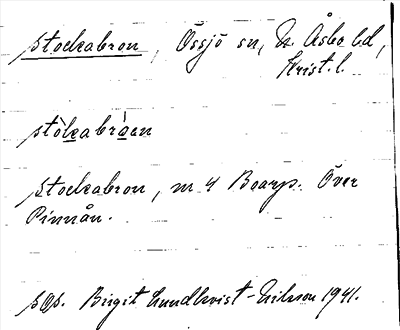 Stockabron, Össjö sn, N. Åsbo hd,
Krist. l.
stòkabråen
Stockabron, nr 4 Boarp. Över
Pinnån.
Birgit Lundkvist-Eriksson 1941.